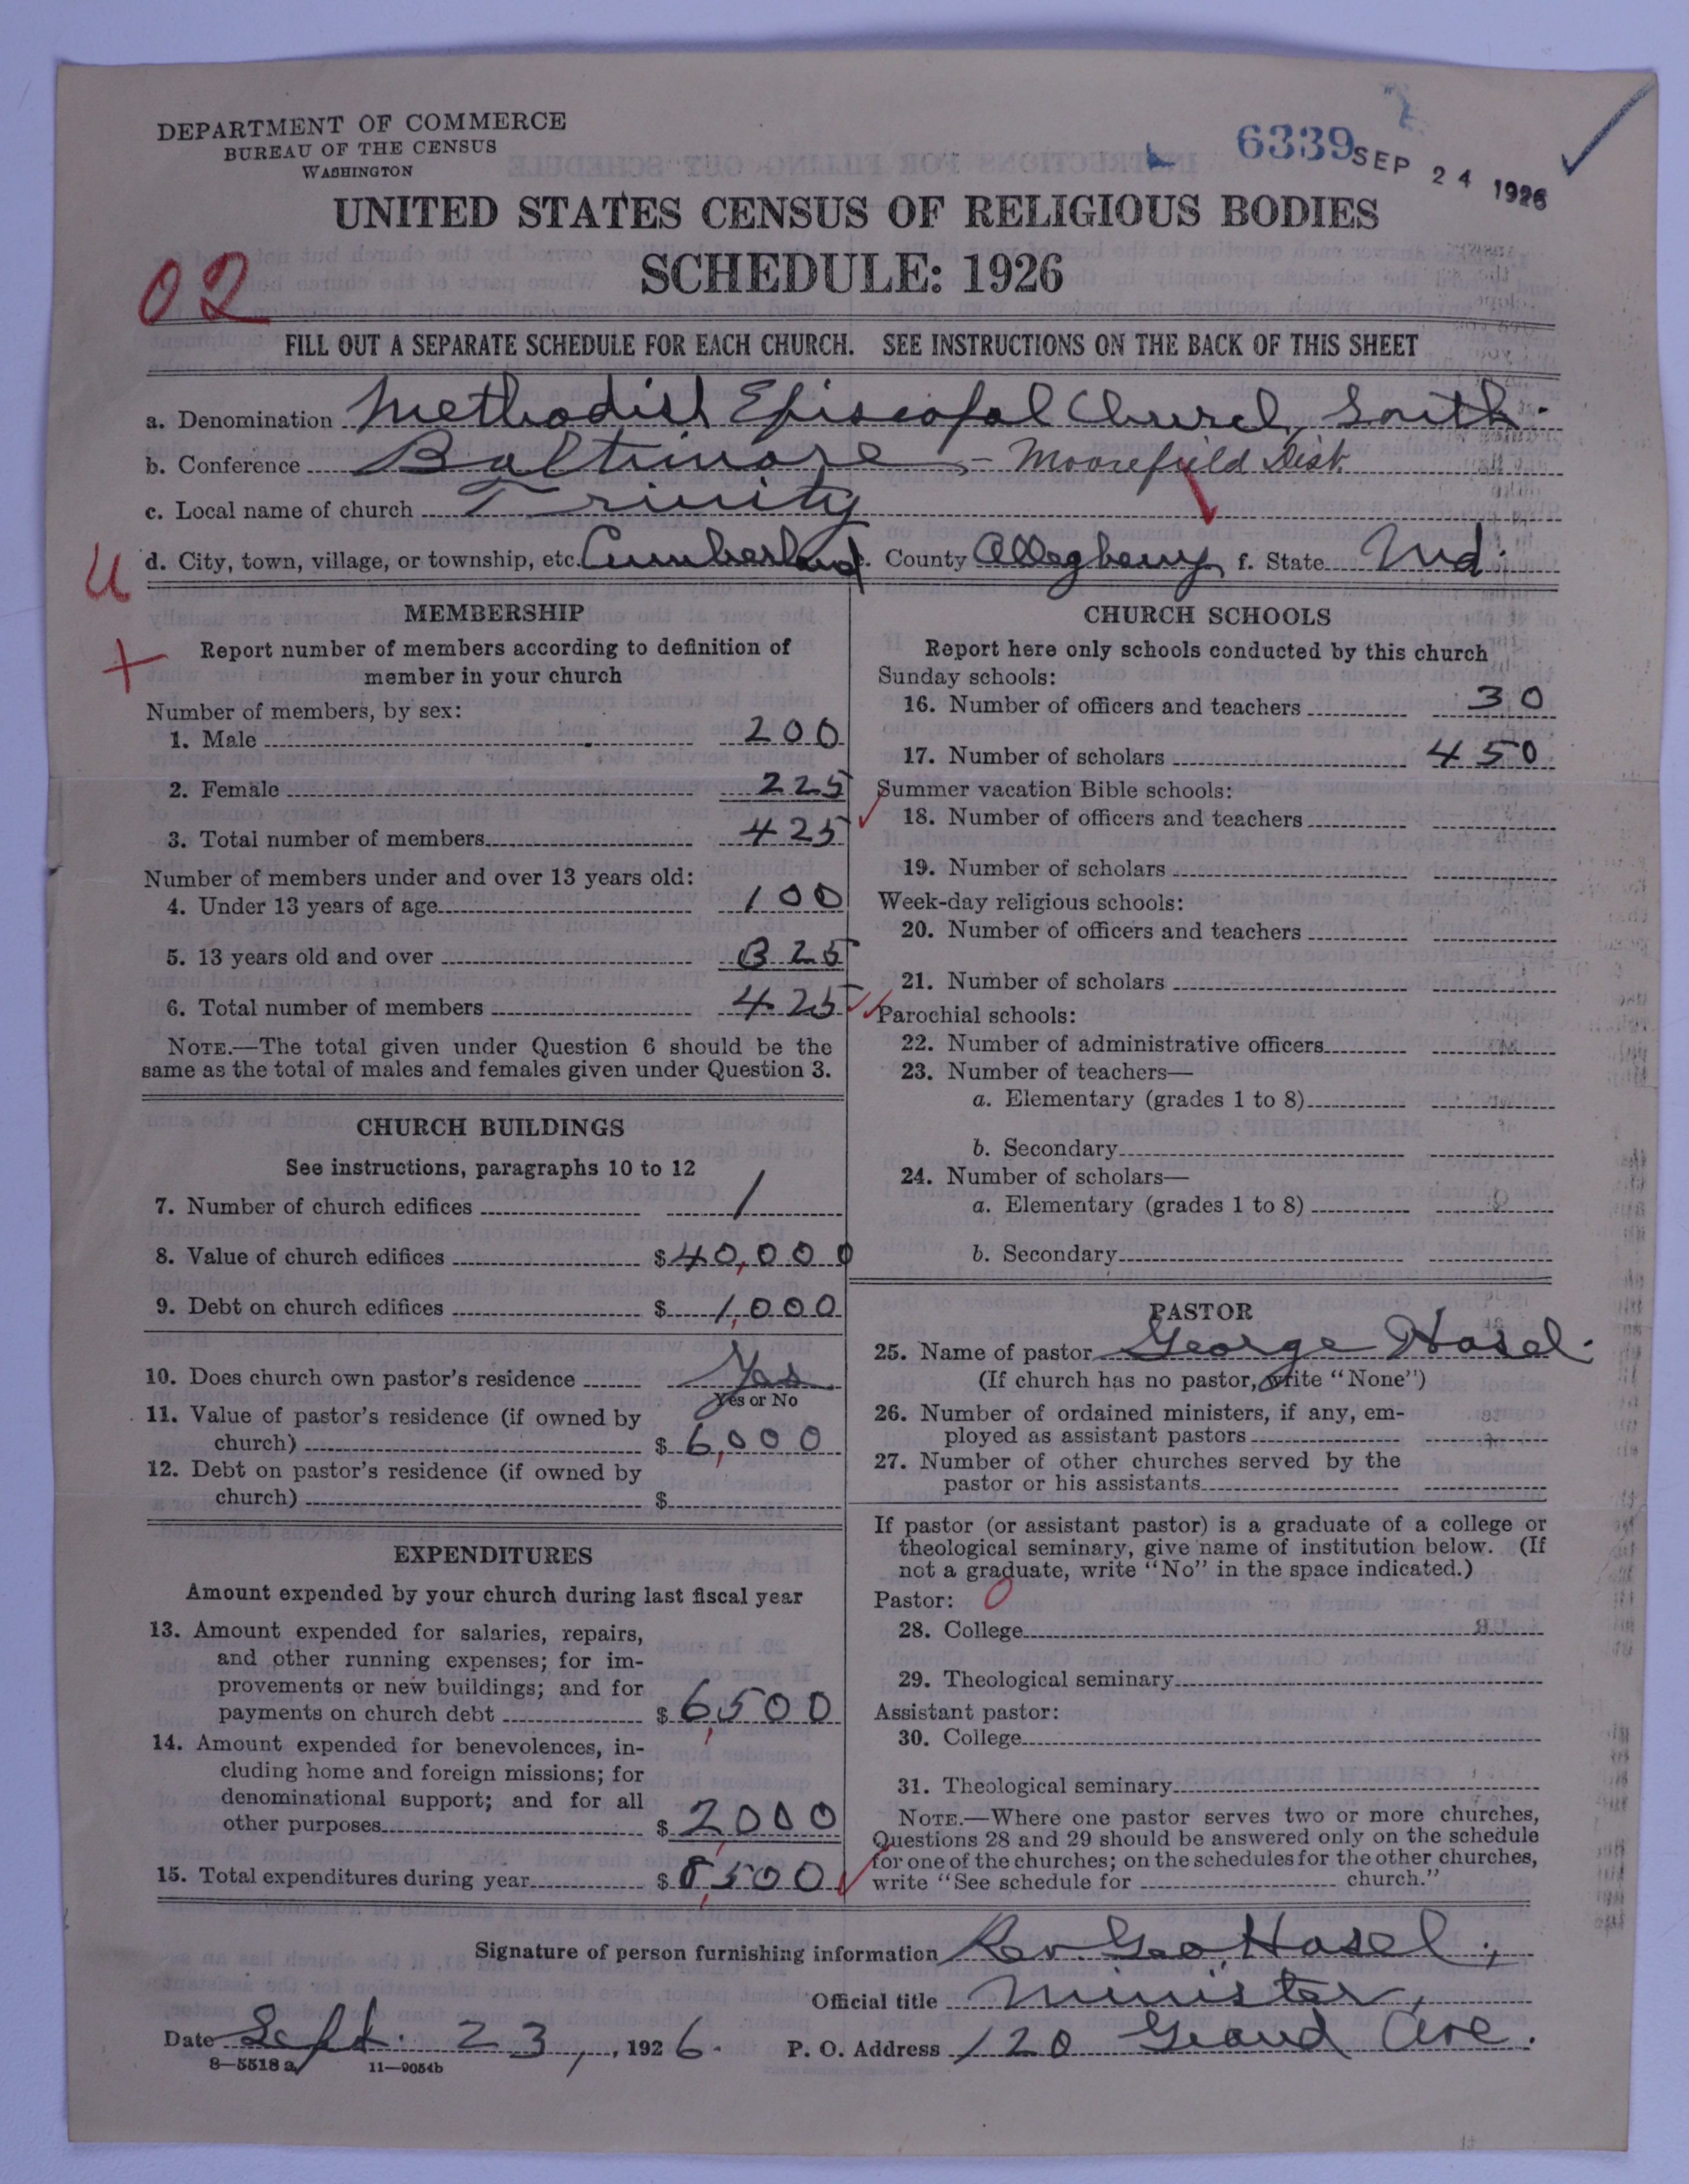 DEPARTMENT OF COMMERCE
BUREAU OF THE CENSUS
WASHINGTON
6339
SEP 24 1926
UNITED STATES CENSUS OF RELIGIOUS BODIES
SCHEDULE: 1926
02
FILL OUT A SEPARATE SCHEDULE FOR EACH CHURCH. SEE INSTRUCTIONS ON THE BACK OF THIS SHEET
a. Denomination Methodist Episcopal Church, South.
b. Conference Baltimore - Moorefield Dist.
c. Local name of church Trinity
d. City, town, village, or township, etc. Cumberland e. County Allegheny f. State Md.
U
MEMBERSHIP
Report number of members according to definition of
member in your church
Number of members, by sex:
1. Male 200
2. Female 225
3. Total number of members 425
Number of members under and over 13 years old:
4. Under 13 years of age 100
5. 13 years old and over 325
6. Total number of members 425
NOTE.—The total given under Question 6 should be the
same as the total of males and females given under Question 3.
CHURCH BUILDINGS
See instructions, paragraphs 10 to 12
7. Number of church edifices 1
8. Value of church edifices $40,000
9. Debt on church edifices $1,000
10. Does church own pastor's residence Yes
Yes or No
11. Value of pastor's residence (if owned by
church) $6,000
12. Debt on pastor's residence (if owned by
church) $
EXPENDITURES
Amount expended by your church during last fiscal year
13. Amount expended for salaries, repairs,
and other running expenses; for im-
provements or new buildings; and for
payments on church debt $6,500
14. Amount expended for benevolences, in-
cluding home and foreign missions; for
denominational support; and for all
other purposes $2,000
15. Total expenditures during year $8,500
CHURCH SCHOOLS
Report here only schools conducted by this church
Sunday schools:
16. Number of officers and teachers 30
17. Number of scholars 450
Summer vacation Bible schools:
18. Number of officers and teachers
19. Number of scholars
Week-day religious schools:
20. Number of officers and teachers
21. Number of scholars
Parochial schools:
22. Number of administrative officers
23. Number of teachers—
a. Elementary (grades 1 to 8)
b. Secondary
24. Number of scholars—
a. Elementary (grades 1 to 8)
b. Secondary
PASTOR
25. Name of pastor George Hasel.
(If church has no pastor, write "None")
26. Number of ordained ministers, if any, em-
ployed as assistant pastors
27. Number of other churches served by the
pastor or his assistants
If pastor (or assistant pastor) is a graduate of a college or
theological seminary, give name of institution below. (If
not a graduate, write "No" in the space indicated.)
Pastor: 0
28. College
29. Theological seminary
Assistant pastor:
30. College
31. Theological seminary
NOTE.—Where one pastor serves two or more churches,
Questions 28 and 29 should be answered only on the schedule
for one of the churches; on the schedules for the other churches,
write "See schedule for church."
Signature of person furnishing information Rev. Geo. Hasel,
Official title Minister,
Date Sept. 23, 1926. P. O. Address 120 Grand Ave.
8—5518 a 11—9054b